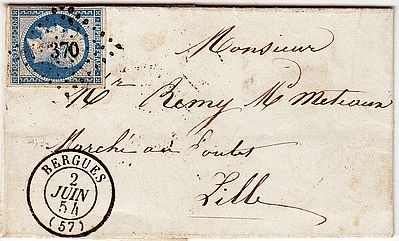 370
Monsieur
Mr Remy Md Meteaux
Marché au Poulets
Lille
BERGUES
2
JUIN
54
(57)